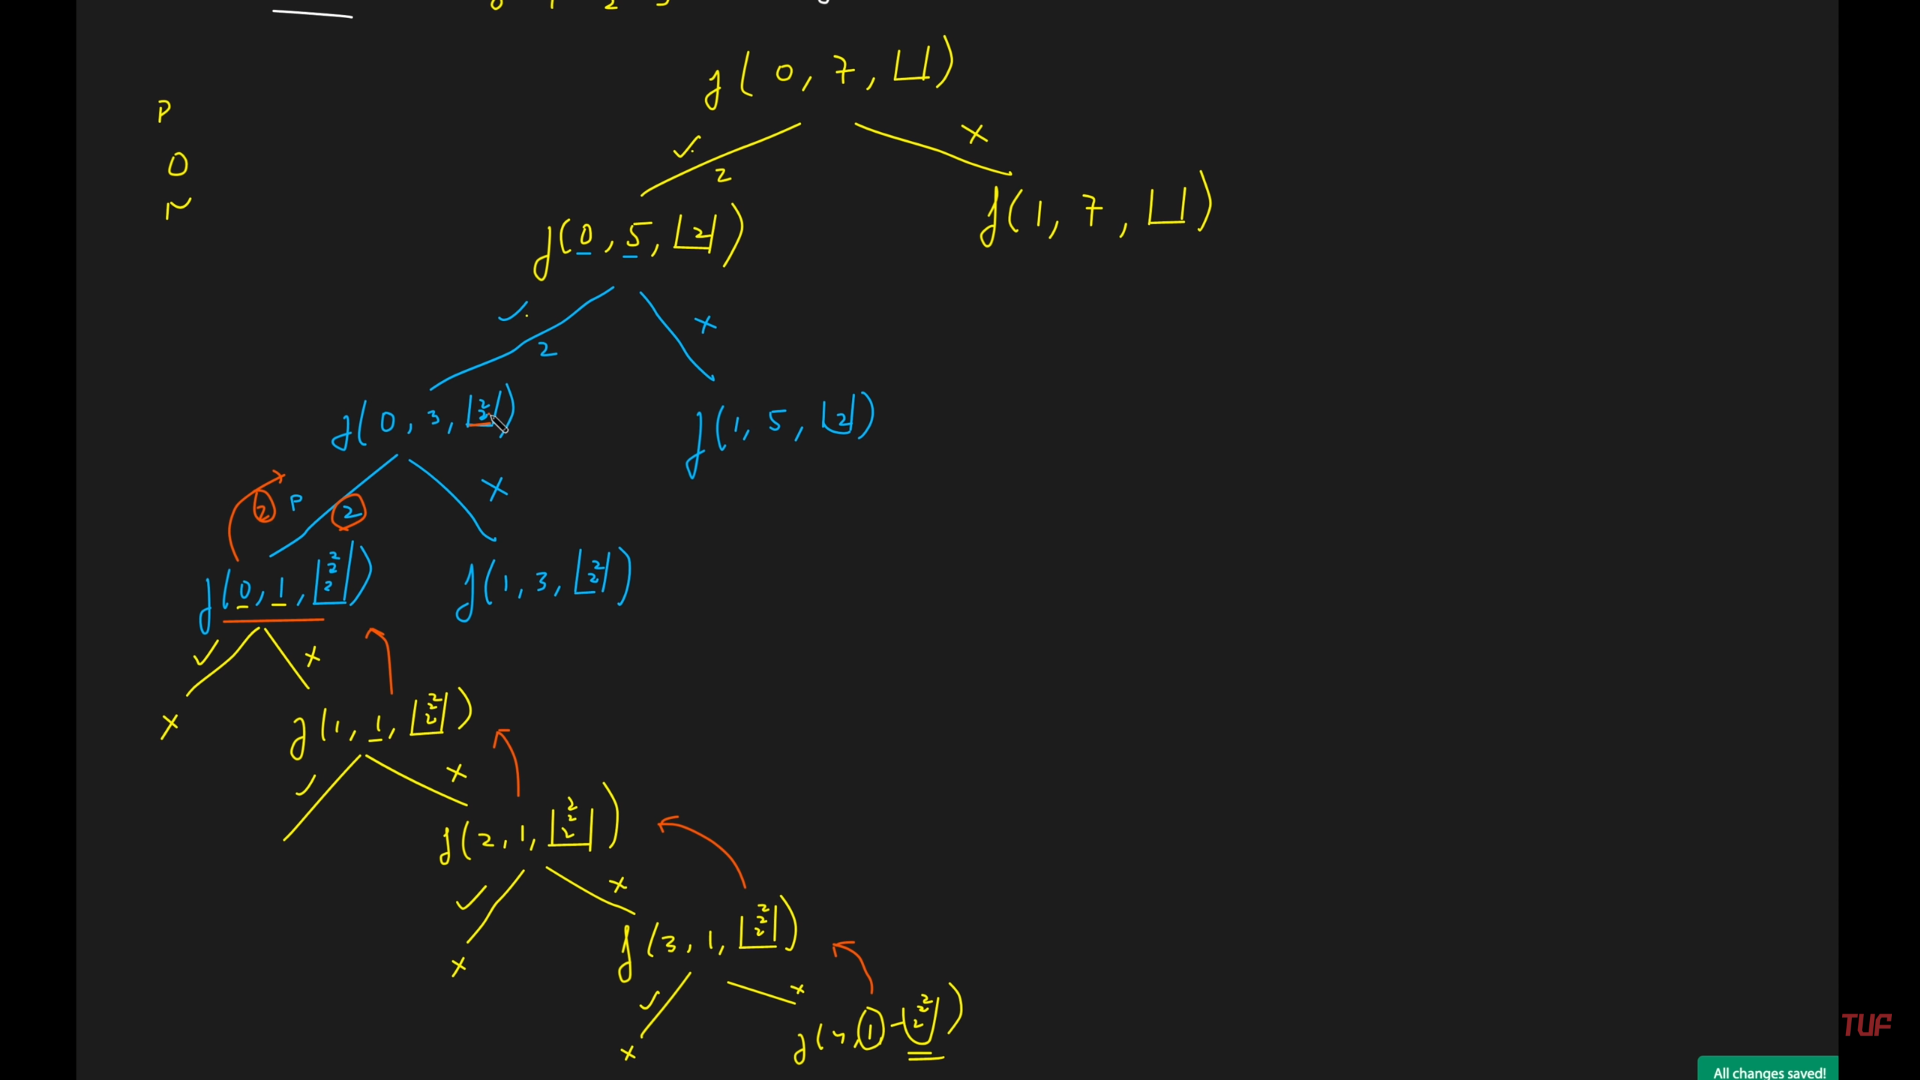 0 1 2 3
f(0, 7, ⌊⌋)
P
O
N
✓ 2 ×
f(0, 5, ⌊2⌋) f(1, 7, ⌊⌋)
✓ 2 ×
f(0, 3, ⌊2 2⌋) f(1, 5, ⌊2⌋)
2 P 2 ×
f(0, 1, ⌊2 2 2⌋) f(1, 3, ⌊2 2⌋)
✓ ×
× f(1, 1, ⌊2 2 2⌋)
✓ ×
f(2, 1, ⌊2 2 2⌋)
✓ ×
× f(3, 1, ⌊2 2 2⌋)
✓ ×
× f(4, 1, ⌊2 2 2⌋)
TUF
All changes saved!